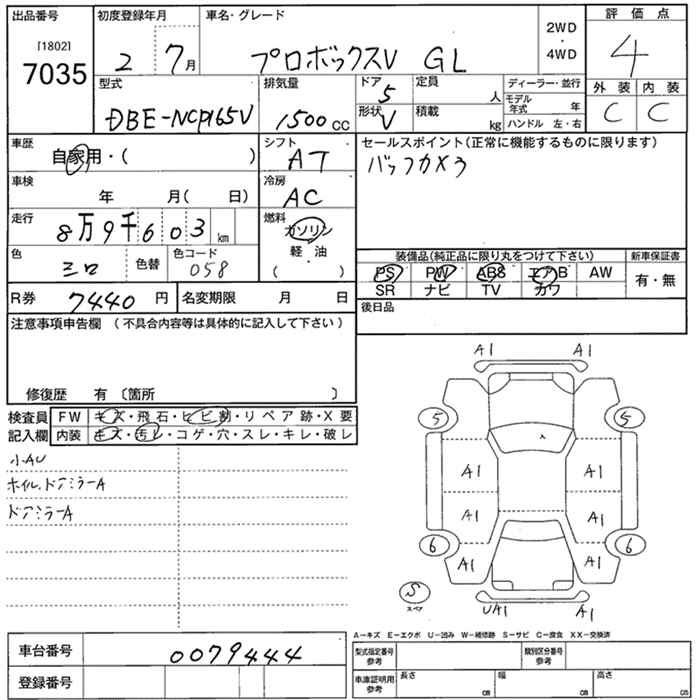 出品番号
[1802]
7035
初度登録年月
2 7月
車名・グレード
プロボックスV GL
2WD
・
4WD
評価点
4
型式
DBE-NCP165V
排気量
1500 CC
ドア
5
形状
V
定員
人
積載
kg
ディーラー・並行
モデル年式 年
ハンドル 左・右
外装
C
内装
C
車歴
自家用・( )
シフト
AT
セールスポイント(正常に機能するものに限ります)
バックカメラ
車検
年 月( 日)
冷房
AC
走行
8万9千603 km
燃料
ガソリン
軽・油
( )
色
シロ
色替
色コード
058
装備品(純正品に限り丸をつけて下さい)
PS PW ABS エアB AW
SR ナビ TV カワ
新車保証書
有・無
R券 7440 円
名変期限 月 日
後日品
注意事項申告欄 (不具合内容等は具体的に記入して下さい)
修復歴 有 〔箇所 〕
検査員
記入欄
FW キズ・飛石・ヒビ割・リペア跡・X要
内装 キズ・汚レ・コゲ・穴・スレ・キレ・破レ
小AU
ホイル、ドアミラーA
ドアミラーA
A1 A1
5 5
A1 A1
A1 A1
6 6
A1 A1
S
スペア
UA1 A1
A-キズ E-エクボ U-凹み W-補修跡 S-サビ C-腐食 XX-交換済
車台番号 0079444
登録番号
型式指定番号
参考
類別区分番号
参考
車庫証明用
参考
長さ cm
幅 cm
高さ cm